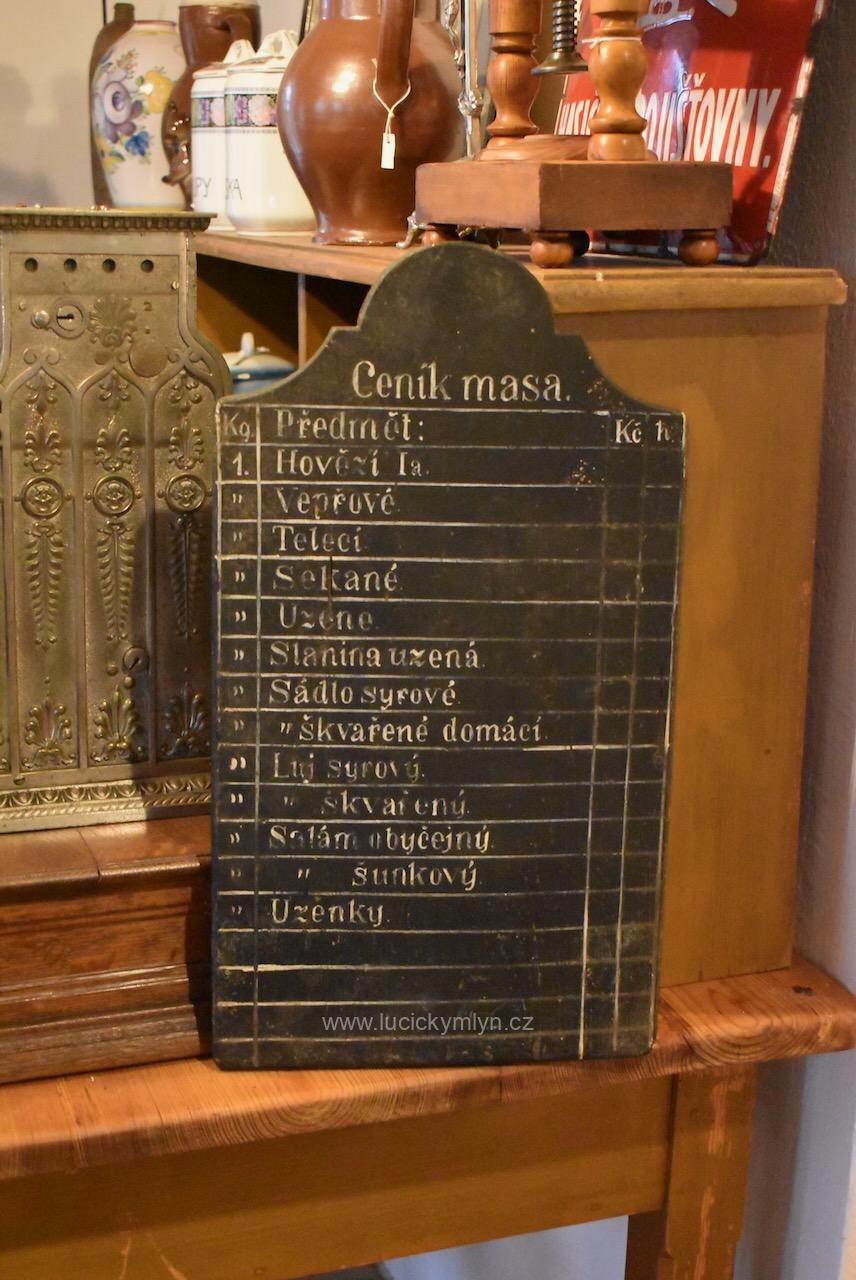 POUŠŤOVNY.
Ceník masa.
Kg. Předmět: Kč h.
1. Hovězí Ia.
" Vepřové
" Telecí
" Sekané
" Uzené
" Slanina uzená.
" Sádlo syrové
" " škvařené domácí.
" Luj syrový.
" " škvařený.
" Salám obyčejný.
" " šunkový.
" Uzenky.
www.lucickymlyn.cz